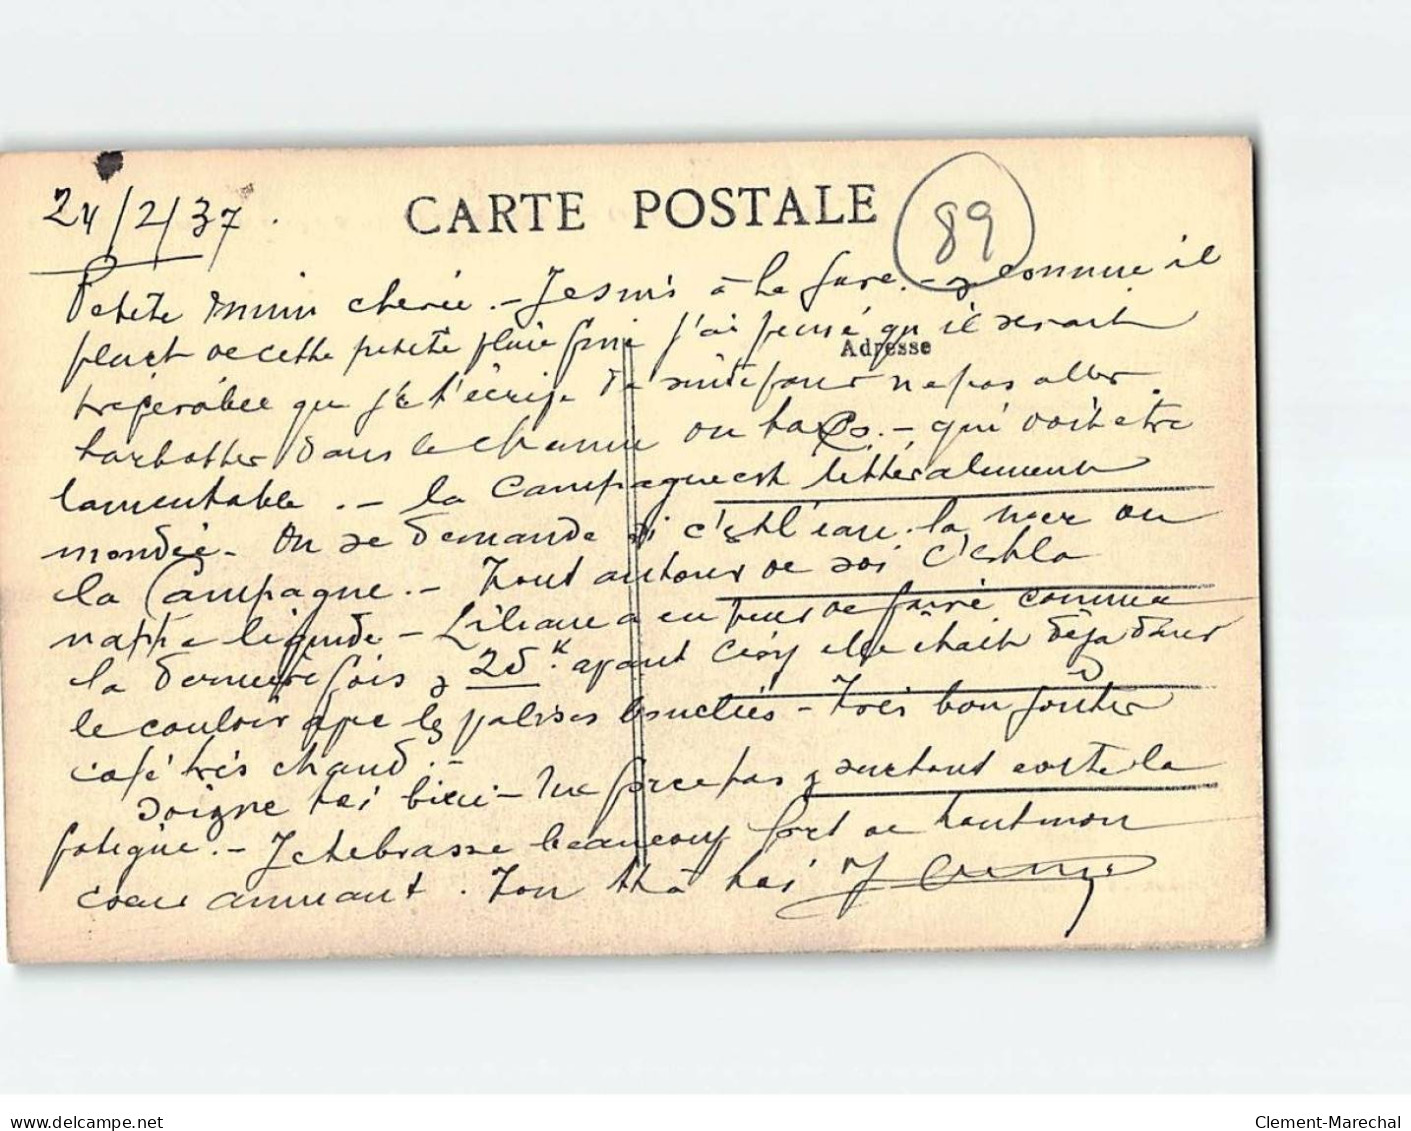 24/2/37.
CARTE POSTALE
89
Petite mimi cherie. - Je suis à la gare. - et comme il
pleut de cette petite pluie fine j'ai pensé qu'il serait
Adresse
préférable que je t'écrive de suite pour ne pas aller
barbotter dans le chemin ou - qui doit etre
lamentable. - la Campagne est littéralement
inondée - On se demande si c'est l'eau la mer ou
la Campagne. - Tout autour de soi c'est la
nappe liquide - Liliane a eu peur de faire comme
la dernière fois, 20 K avant elle était déjà dans
le couloir avec les valises bouclées - Très bon goûter
café très chaud. -
Soigne toi bien - Ne force pas, surtout evite la
fatigue. - Je t'ebrasse beaucoup fort de tout mon
coeur aimant. Ton à toi
delcampe.net
Clement-Marechal